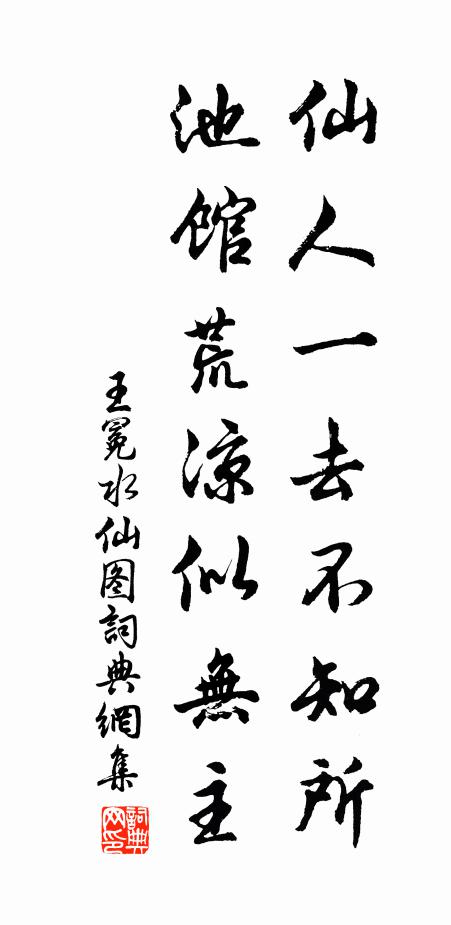 仙人一去不知所
池馆荒凉似無主
王冕水仙图詞典網集
詞典网印